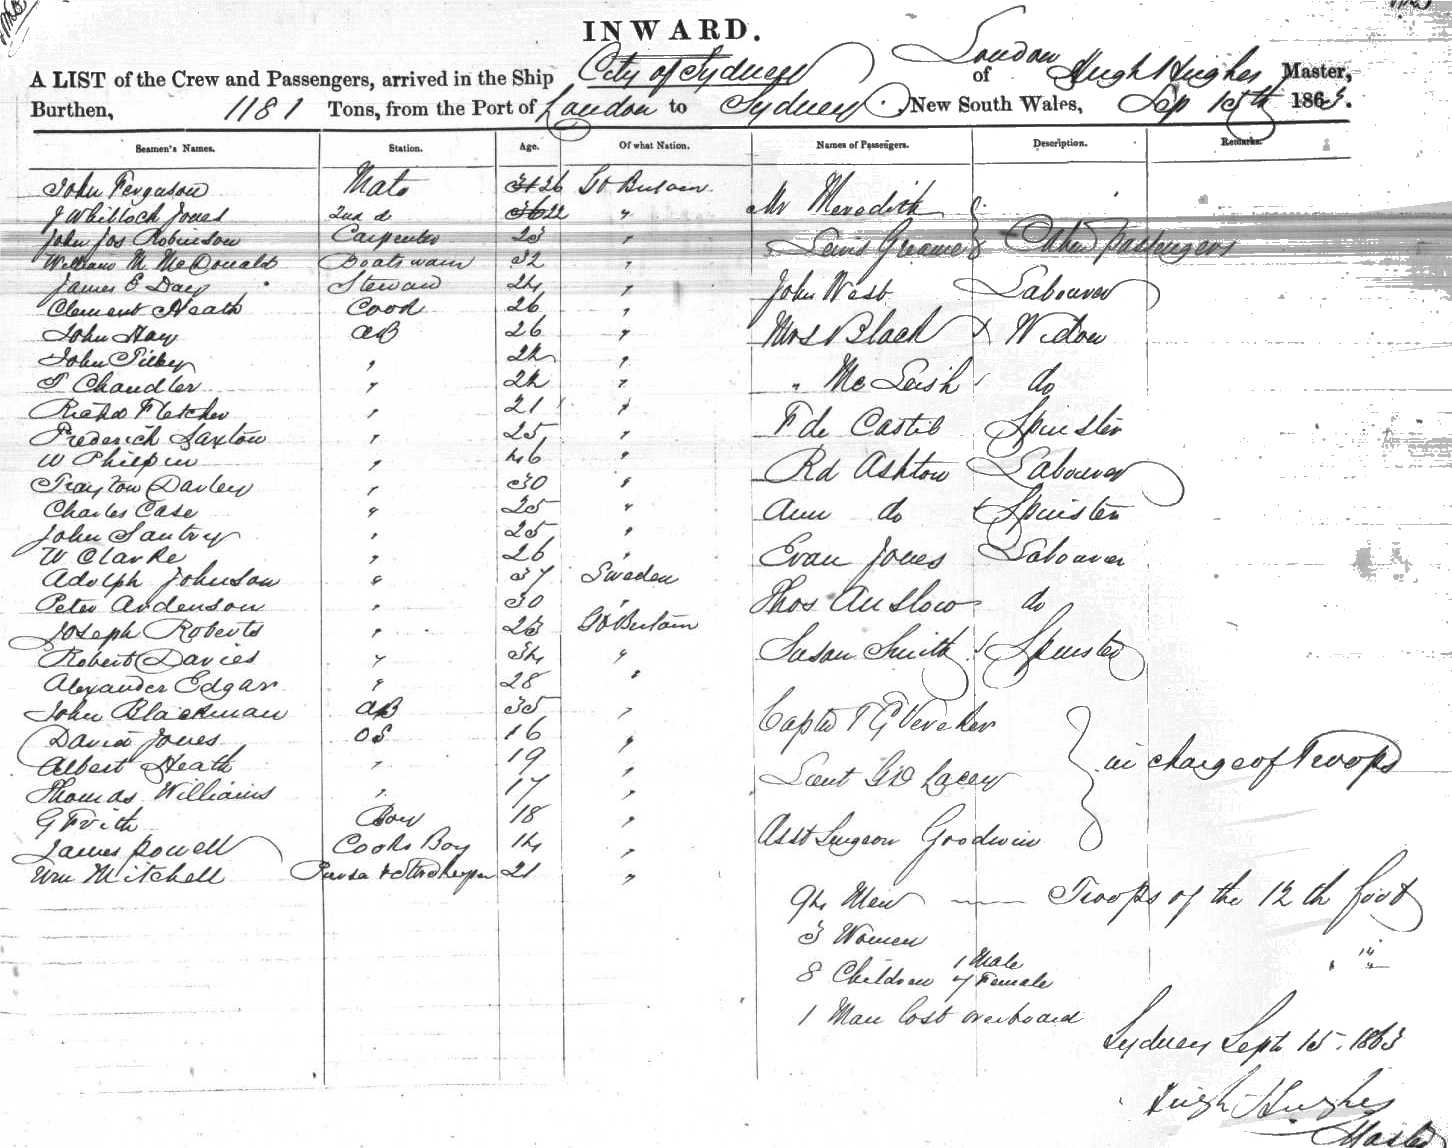 INWARD.
A LIST of the Crew and Passengers, arrived in the Ship City of Sydney of London Hugh Hughes Master,
Burthen, 1181 Tons, from the Port of London to Sydney New South Wales, Sep 15th 1863.
Seamen's Names. Station. Age. Of what Nation. Names of Passengers. Description. Remarks.
John Ferguson Mate 26 Gt Britain
J Whitlock Jones 2nd d 22 "
John Jos Robinson Carpenter 23 "
William M McDonald Boatswain 32 "
James E Day Steward 24 "
Clement Heath Cook 26 "
John Hay AB 26 "
John Tilley " 24 "
T Chandler " 24 "
Richd Fletcher " 21 "
Frederick Saxton " 25 "
W Philpin " 46 "
Trayton Davley " 30 "
Charles Case " 25 "
John Santry " 25 "
W Clarke " 26 "
Adolph Johnson " 37 Sweden
Peter Andenson " 30 "
Joseph Roberts " 23 Gt Britain
Robert Davies " 34 "
Alexander Edgar " 28 "
John Blackman AB 35 "
David Jones OS 16 "
Albert Heath " 19 "
Thomas Williams " 17 "
G Frith Boy 18 "
James Powell Cooks Boy 14 "
Wm Mitchell 21 "
Mr Meredith
" Lewis Graeme Cabin Passengers
John West Labourer
Mrs Black Widow
" McLeish do
F de Castil Spinster
Rd Ashton Labourer
Ann do Spinster
Evan Jones Labourer
Thos Anslow do
Susan Smith Spinster
Captn T G Vereker
Lieut Geo Lacey in charge of Troops
Asst Surgeon Goodwin
94 Men — Troops of the 12th foot
3 Women " "
8 Children 1 Male 7 Female
1 Man lost overboard
Sydney Sept 15. 1863
Hugh Hughes
Master